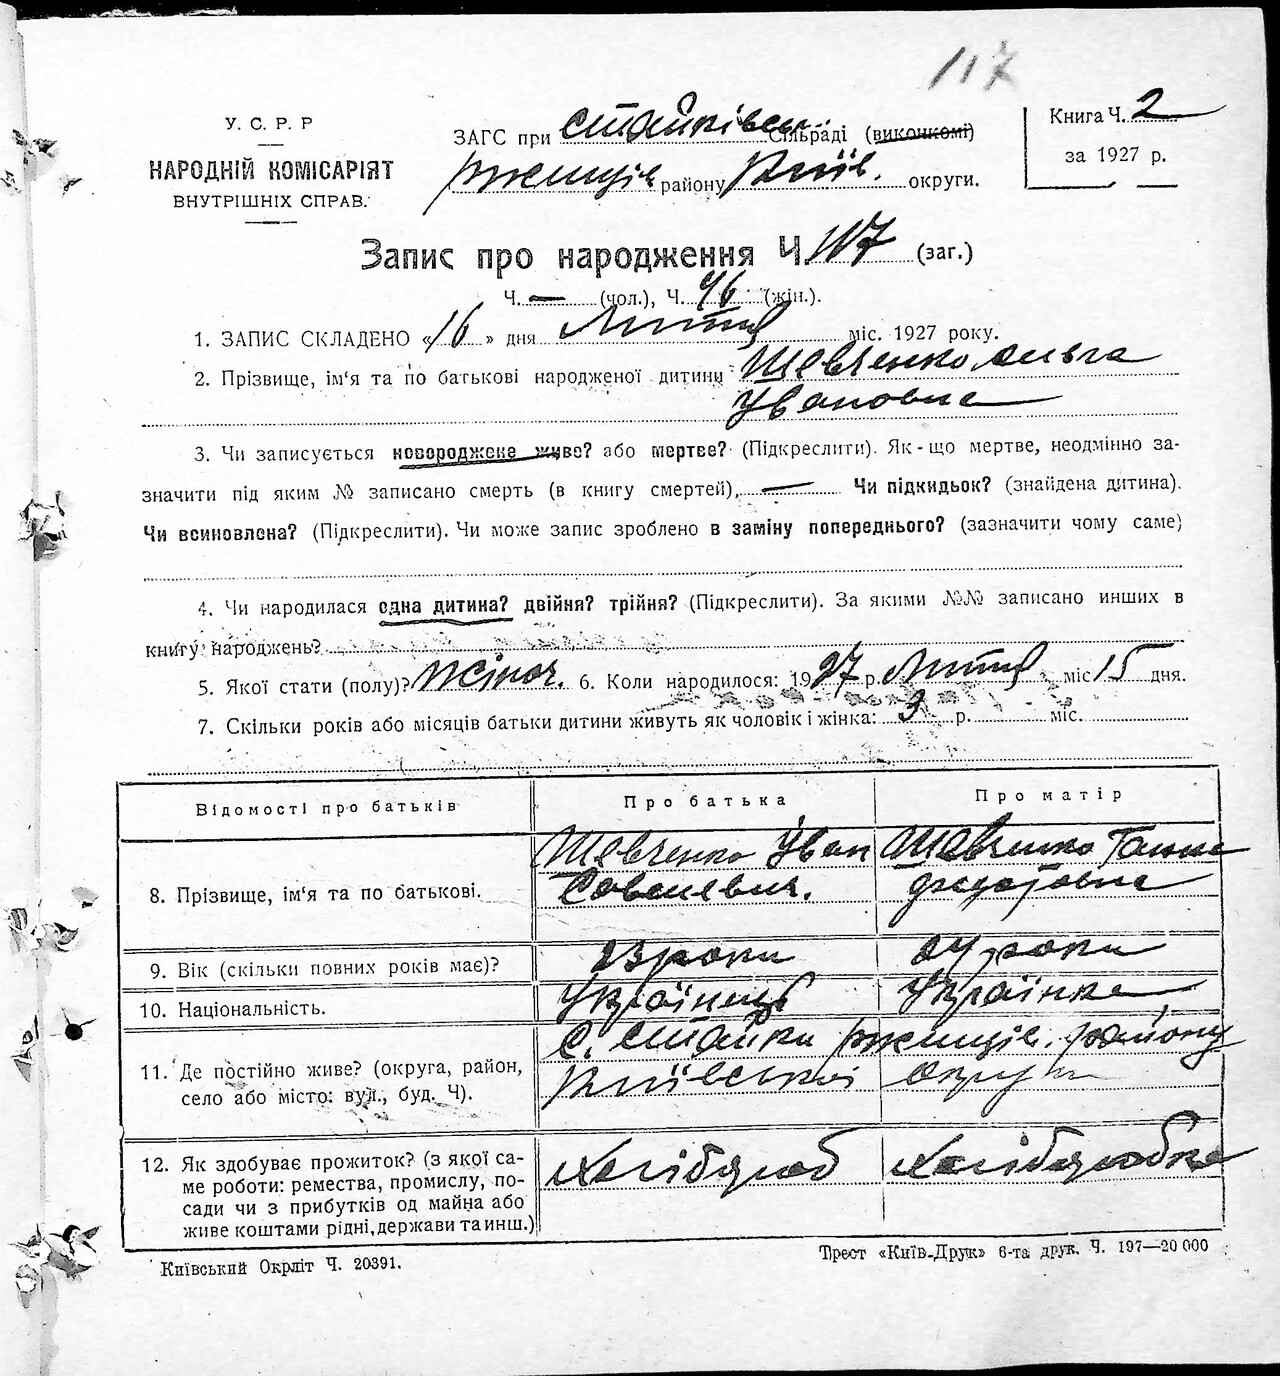 117
У. С. Р. Р
НАРОДНІЙ КОМІСАРІЯТ
ВНУТРІШНІХ СПРАВ.
ЗАГС при Стайківськ. Сільраді (виконкомі)
Ржищів району Київ. округи.
Книга Ч. 2
за 1927 р.
Запис про народження Ч. 117 (заг.)
Ч. — (чол.), Ч. 46 (жін.).
1. ЗАПИС СКЛАДЕНО «16» дня Лютня міс. 1927 року.
2. Прізвище, ім'я та по батькові народженої дитини Шевченко Ольга
Ивановна
3. Чи записується новороджене живе? або мертве? (Підкреслити). Як-що мертве, неодмінно за-
значити під яким № записано смерть (в книгу смертей), — Чи підкидьок? (знайдена дитина).
Чи всиновлена? (Підкреслити). Чи може запис зроблено в заміну попереднього? (зазначити чому саме)
4. Чи народилася одна дитина? двійня? трійня? (Підкреслити). За якими №№ записано инших в
книгу народжень?
5. Якої стати (полу)? Жіноч. 6. Коли народилося: 1927 р. Лютня міс 15 дня.
7. Скільки років або місяців батьки дитини живуть як чоловік і жінка: 3 р. міс.
Відомості про батьків
Про батька
Про матір
8. Прізвище, ім'я та по батькові.
Шевченко Йван
Савелевич.
Шевченко Ганна
Федотовна
9. Вік (скільки повних років має)?
23 роки
24 роки
10. Національність.
Українець
Українка
11. Де постійно живе? (округа, район,
село або місто: вул., буд. Ч).
С. Стайки Ржищів. району
Київської округи
12. Як здобуває прожиток? (з якої са-
ме роботи: ремества, промислу, по-
сади чи з прибутків од майна або
живе коштами рідні, держави та инш.)
Хлібороб
Хліборобка
Київський Окрліт Ч. 20391.
Трест «Київ-Друк» 6-та друк. Ч. 197—20 000